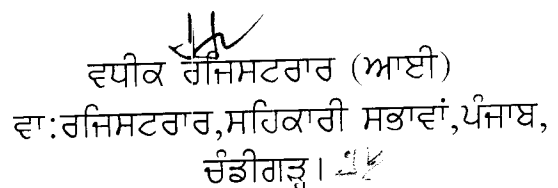 ਵਧੀਕ ਰਜਿਸਟਰਾਰ (ਆਈ)
ਵਾ:ਰਜਿਸਟਰਾਰ,ਸਹਿਕਾਰੀ ਸਭਾਵਾਂ,ਪੰਜਾਬ,
ਚੰਡੀਗੜ੍ਹ।